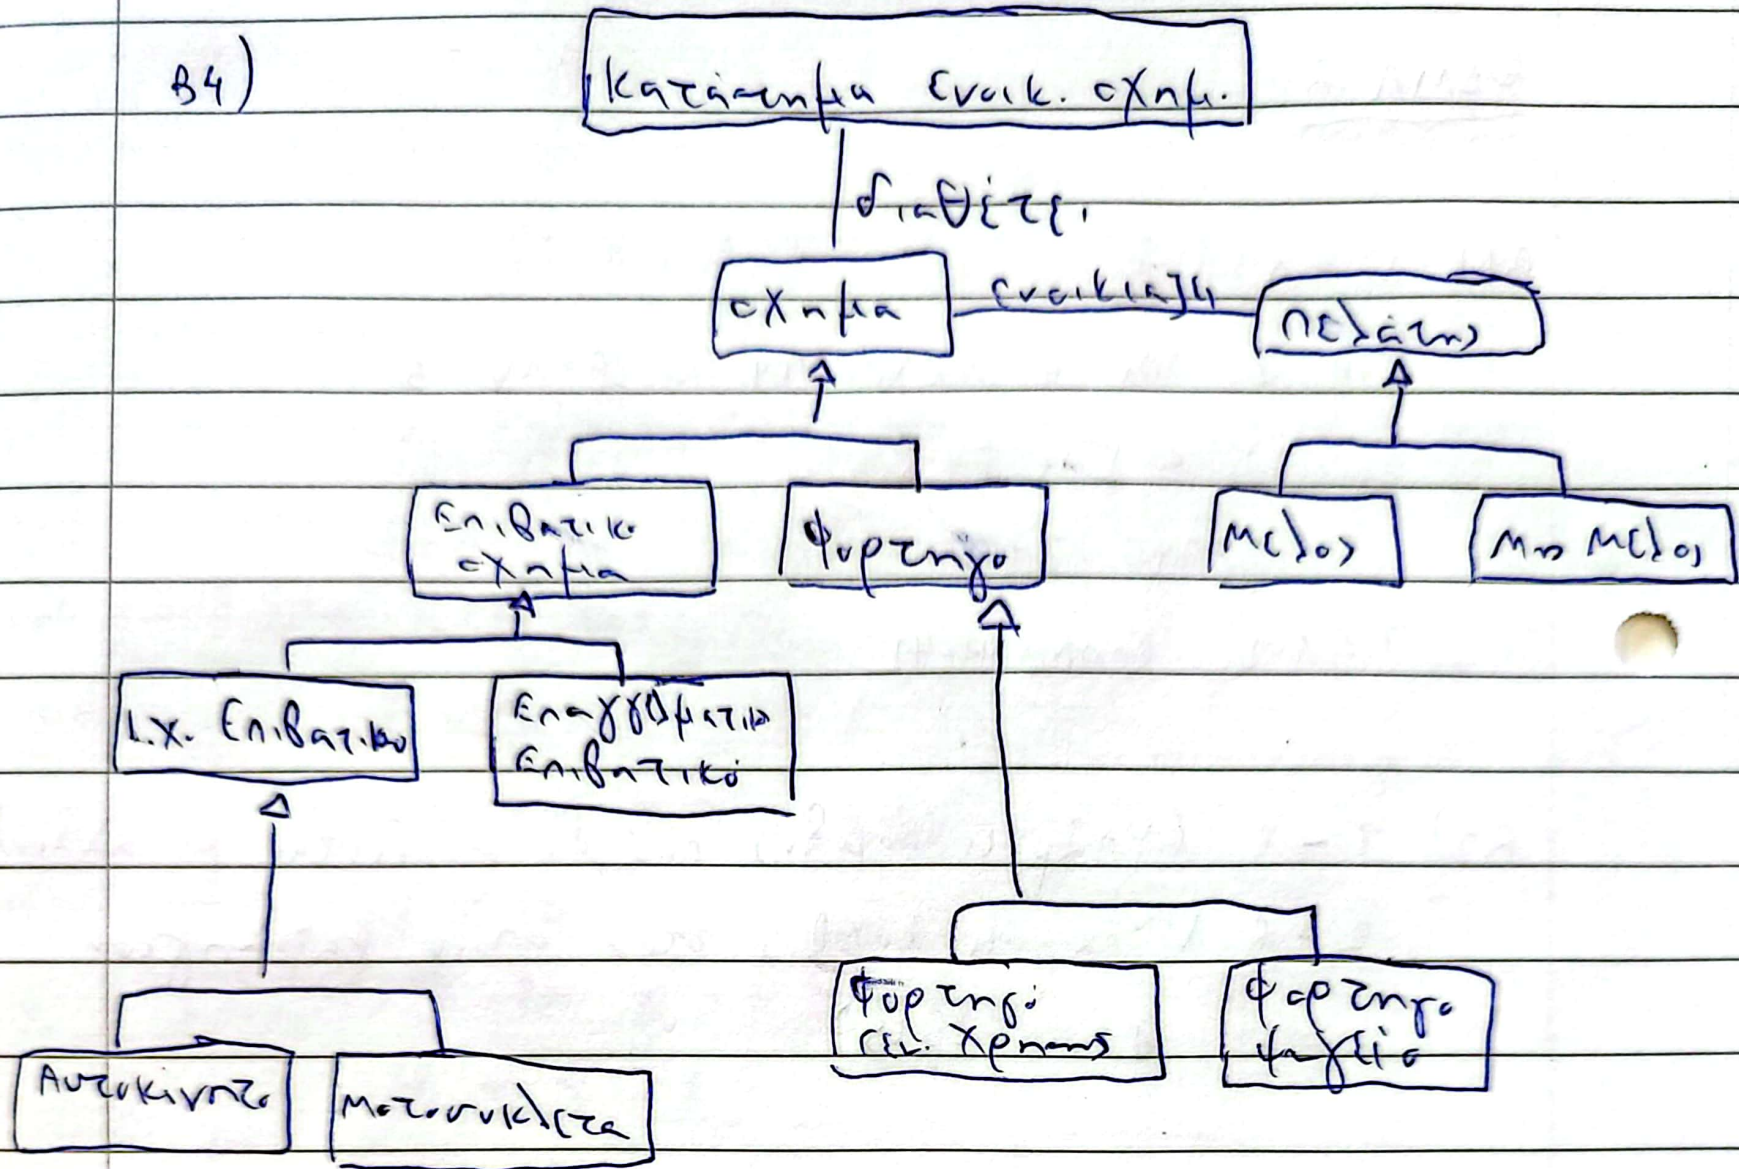 Β4)
Κατάστημα ενοικ. οχημ.
διαθέτει
οχημα
ενοικιαζει
Πελάτης
Επιβατικο
οχημα
Φορτηγο
Μελος
Μη Μελος
Ι.Χ. Επιβατικο
Επαγγελματικο
Επιβατικό
Φορτηγό
Γεν. Χρησης
Φορτηγο
ψυγείο
Αυτοκινητο
Μοτοσυκλετα